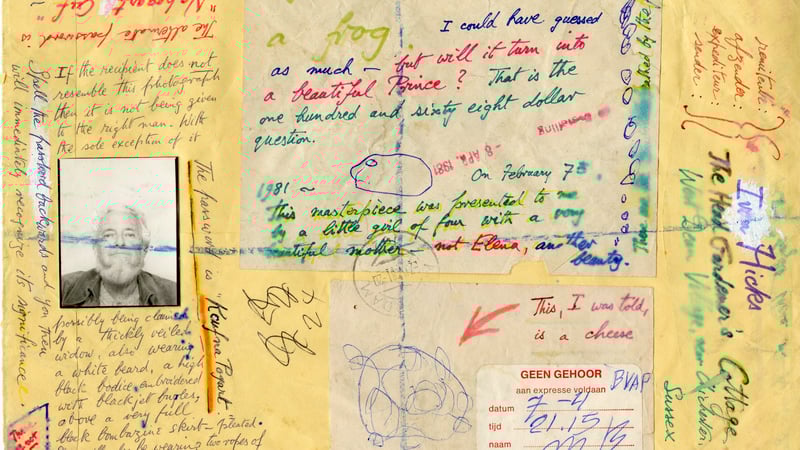 "Nabogant Cuf"
The alternate password is
Spell the password backwards and you then
will immediately recognise its significance
If the recipient does not
resemble this photograph
then it is not being given
to the right man. With
the sole exception of it
possibly being claimed
by a thickly veiled
widow, also wearing
a white beard, a high
black bodice embroidered
with black jet bugles,
above a very full
black bombazine skirt - pleated.
wearing two ropes of
The password is
a frog.
I could have guessed
as much – but will it turn into
a beautiful Prince? That is the
one hundred and sixty eight dollar
question.
- 8 APR. 1981
On February 7
1981 ~
this masterpiece was presented to me
by a little girl of four with a very
beautiful mother not Elena, another
beauty.
This, I was told,
is a cheese
GEEN GEHOOR
aan expresse voldaan
BVAP
datum 7-4
tijd 21.15
naam
afzender
expediteur
sender
Ivan Hicks
The Head Gardener's Cottage
West Dean Village, near Chichester.
Sussex